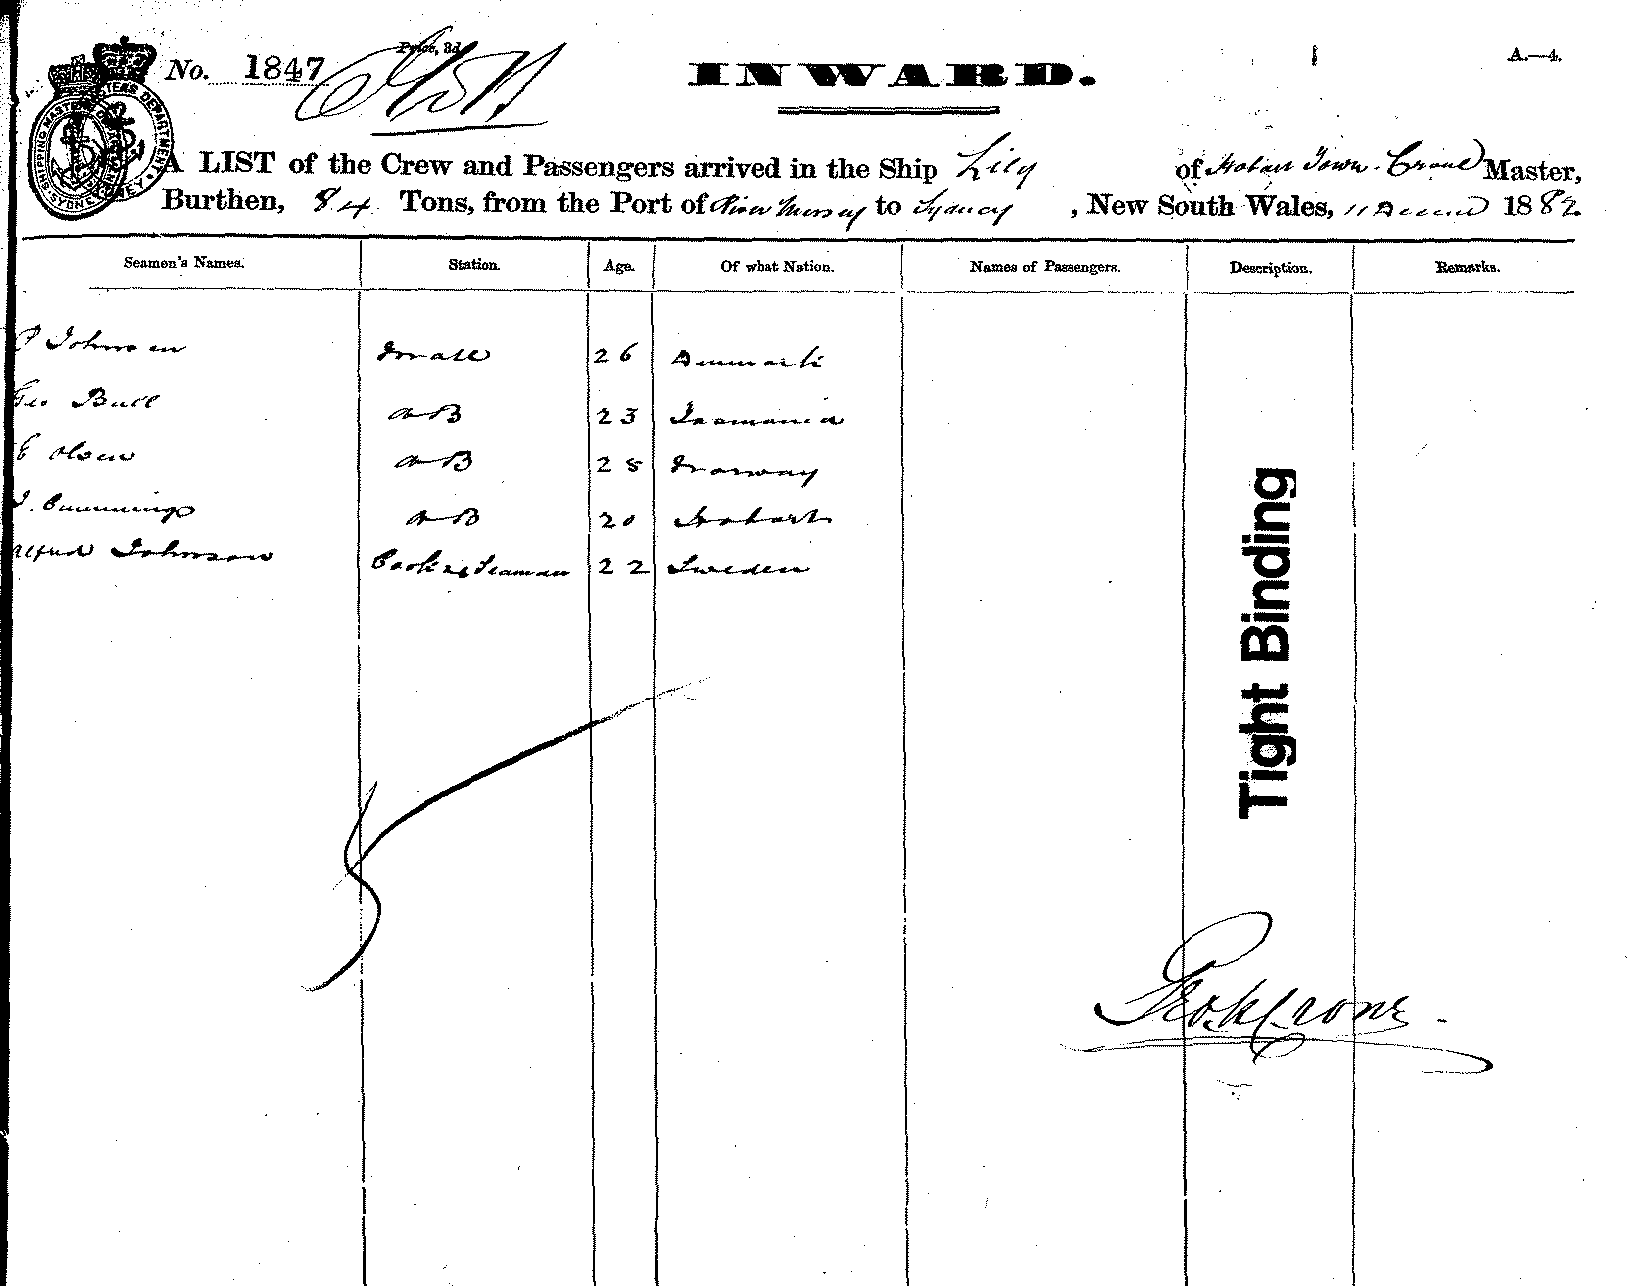 No. 1847
Price, 3d.
INWARD.
A.—4.
SHIPPING MASTERS DEPARTMENT SYDNEY
A LIST of the Crew and Passengers arrived in the Ship Lily of Hobart Town. Crone Master,
Burthen, 84 Tons, from the Port of River Mersey to Sydney, New South Wales, 11 Decem 1882
Seamen's Names. Station. Age. Of what Nation. Names of Passengers. Description. Remarks.
P Johnsen Mate 26 Denmark
Geo Bull AB 23 Tasmania
E Olsen AB 28 Norway
J. Cummings AB 20 Hobart
Alfred Johnson Cook & Seaman 22 Sweden
Tight Binding
Geo K Crone.